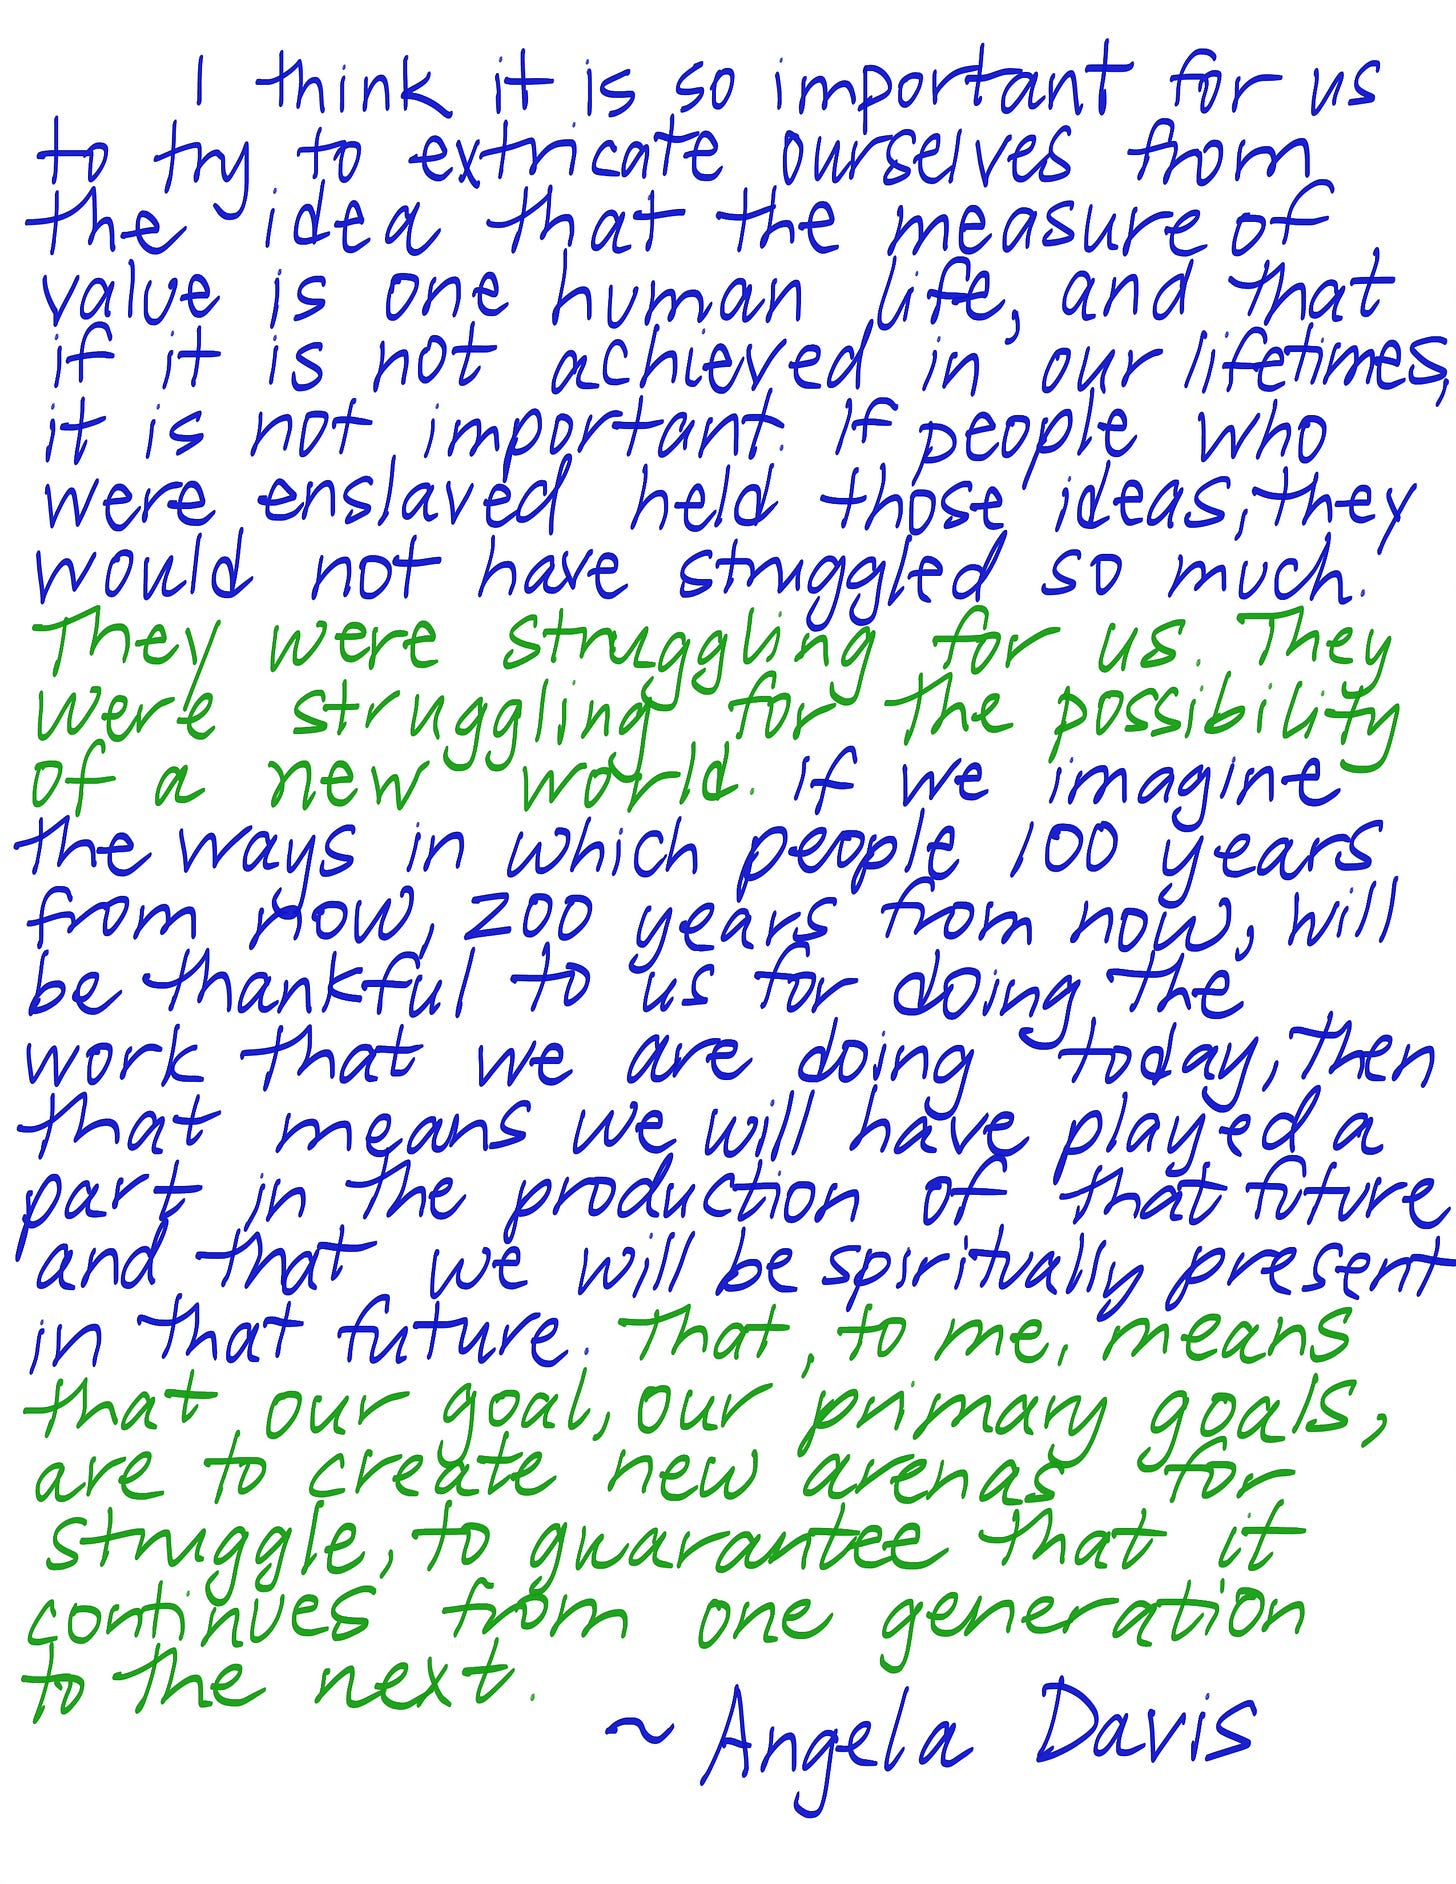 I think it is so important for us
to try to extricate ourselves from
the idea that the measure of
value is one human life, and that
if it is not achieved in our lifetimes,
it is not important. If people who
were enslaved held those ideas, they
would not have struggled so much.
They were struggling for us. They
were struggling for the possibility
of a new world. If we imagine
the ways in which people 100 years
from now, 200 years from now, will
be thankful to us for doing the
work that we are doing today, then
that means we will have played a
part in the production of that future
and that we will be spiritually present
in that future. That, to me, means
that our goal, our primary goals,
are to create new arenas for
struggle, to guarantee that it
continues from one generation
to the next.
~ Angela Davis